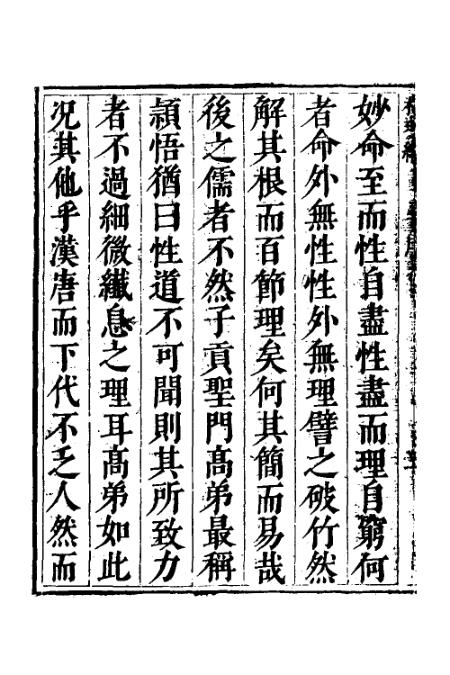 妙命至而性自盡性盡而理自窮何
者命外無性性外無理譬之破竹然
解其根而百節理矣何其簡而易哉
後之儒者不然子貢聖門髙弟最稱
頴悟猶曰性道不可聞則其所致力
者不過細微纎息之理耳髙弟如此
况其他乎漢唐而下代不乏人然而